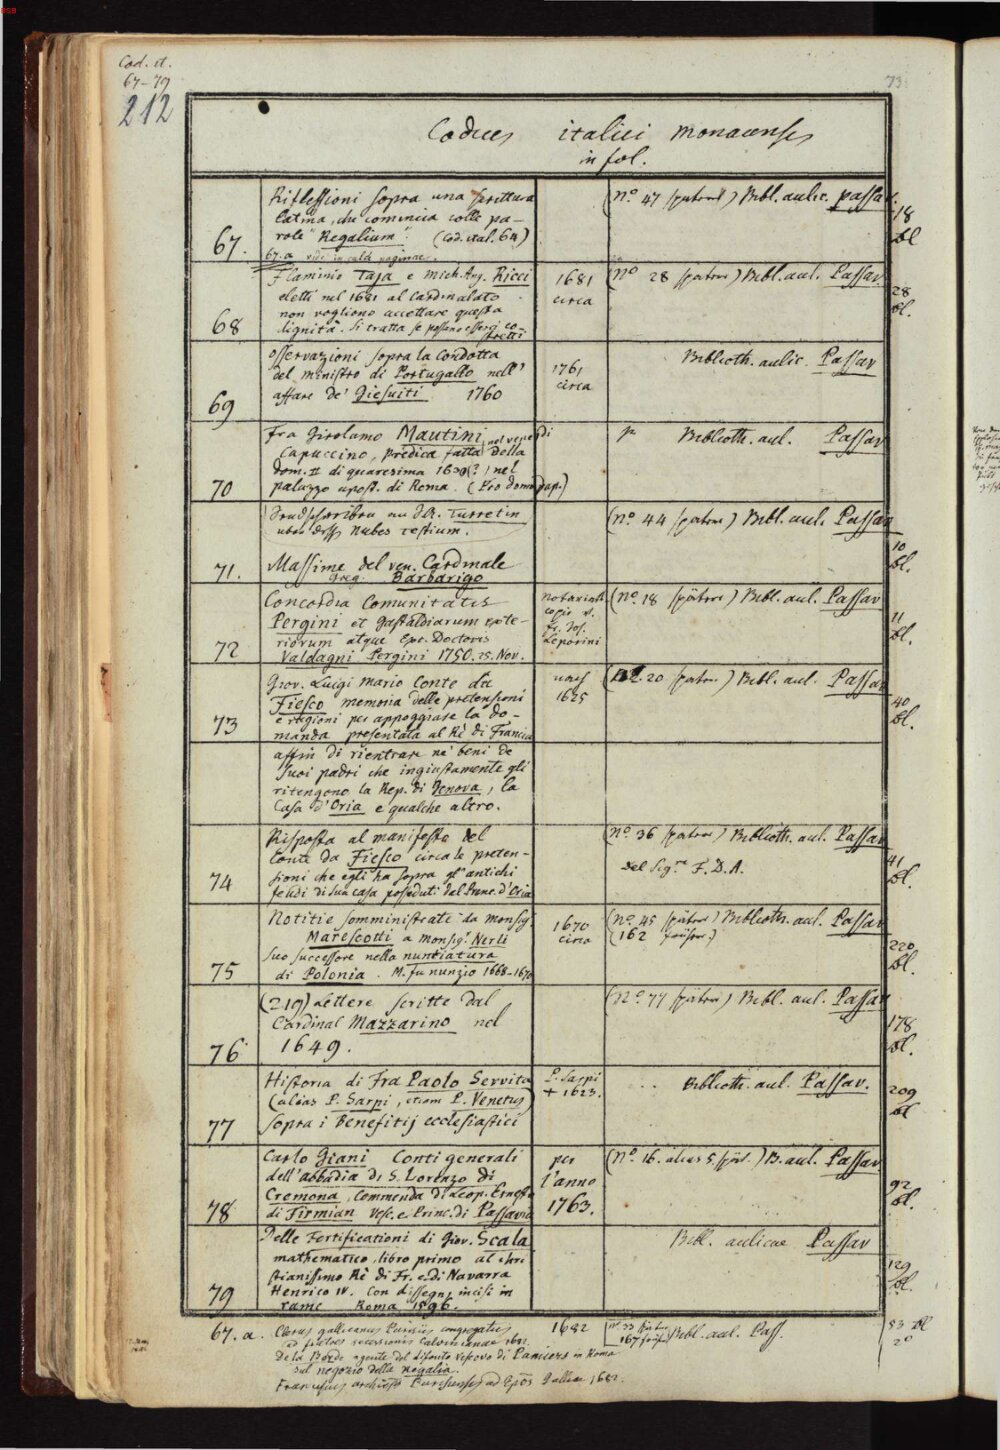 Cod. it.
67-79
212
73
Codices italici monacenses
in fol.
67. Riflessioni sopra una scrittura
latina, che comincia colle pa-
role "Regalium". (Cod. ital. 64)
67.a vide in calce paginae.
(No. 47 ) Bibl. aulic. passav.
18
bl
68 Flaminio Taja e Mich. Ang. Ricci
eletti nel 1681 al Cardinalato
non vogliono accettare questa
dignità. Si tratta se possano esserci co-
stretti
1681
circa
(No 28 ) Bibl. aul. Passav.
28
bl.
69 Osservazioni sopra la Condotta
del ministro di Portugallo nell'
affare de' Giesuiti 1760
1761
circa
Biblioth. aulic. Passav
70 Fra Girolamo Mautini
Capuccino, predica fatta della
dom. II di quaresima 1639(?) nel
palazzo apost. di Roma.
Biblioth. aul. Passav
Turretin
Nubes Testium.
71. Massime del ven. Cardinale
Greg. Barbarigo
(no. 44 ) Bibl. aul. Passav
10
bl.
72 Concordia Comunitatis
Pergini et Gastaldiarum exte-
riorum atque Exc. Doctoris
Valdagni Pergini 1750. 25. Nov.
Leporini
(No. 18 ) Bibl. aul. Passav
11
bl.
73 Giov. Luigi Mario Conte da
Fiesco memoria delle pretensioni
e ragioni per appoggiare la do-
manda presentata al Rè di Francia
nach
1625
20 Bibl. aul. Passav
40
bl.
affin di rientrare ne' beni de
suoi padri che ingiustamente gli
ritengono la Rep. di Genova, la
Casa d'Oria e qualche altro.
74 Risposta al manifesto del
Conte da Fiesco circa le preten-
sioni che egli ha sopra gl'antichi
feudi di sua casa posseduti dal Princ. d'Oria
(No. 36 ) Biblioth. aul. Passav
del Sigre F. D. A.
41
bl.
75 Notitie somministrate da Monsig
Marescotti a Monsigr Nerli
suo successore nella nuntiatura
di Polonia. M. fu nunzio 1668-1670
1670
circa
(No. 45 ) Biblioth. aul. Passav
(162
220
bl.
76 (219) Lettere scritte dal
Cardinal Mazzarino nel
1649.
(No. 77 ) Bibl. aul. Passav
178
bl.
77 Historia di Fra Paolo Servita
(alias P. Sarpi, etiam P. Venetus)
sopra i Benefitij ecclesiastici
P. Sarpi
+ 1623.
Biblioth. aul. Passav.
209
bl
78 Carlo Giani Conti generali
dell'abbadia di S. Lorenzo di
Cremona, Commenda di Leop. Ernesto
di Firmian Vesc. e Princ. di Passavia
per
l'anno
1763.
(No. 16. alias 5. ) B. aul. Passav.
92
bl.
79 Delle Fortificationi di Giov. Scala
mathematico, libro primo al chri
stianissimo Rè di Fr. e di Navarra
Henrico IV. Con dissegni incisi in
rame Roma 1596.
Bibl. aulicae Passav
129
bl.
67. a. Clerus gallicanus Parisiis congregatus
ad fratres secessionis Calvinianae 1682.
De la Borde agente del difonto vescovo di Pamiers in Roma
sul negozio della Regalia.
Franciscus archiepus Parisiensis ad Epos Galliae 1682.
1682
no 33
167 Bibl. aul. Pass.
53 bl
2o